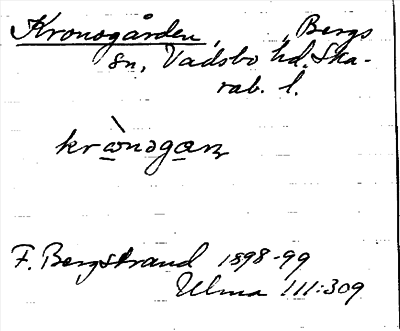 Kronogården, , Bergs
sn, Vadsbo hd. Ska-
rab. l.
krònogaɳ
F. Bergstrand 1898-99
Ulma 111:309